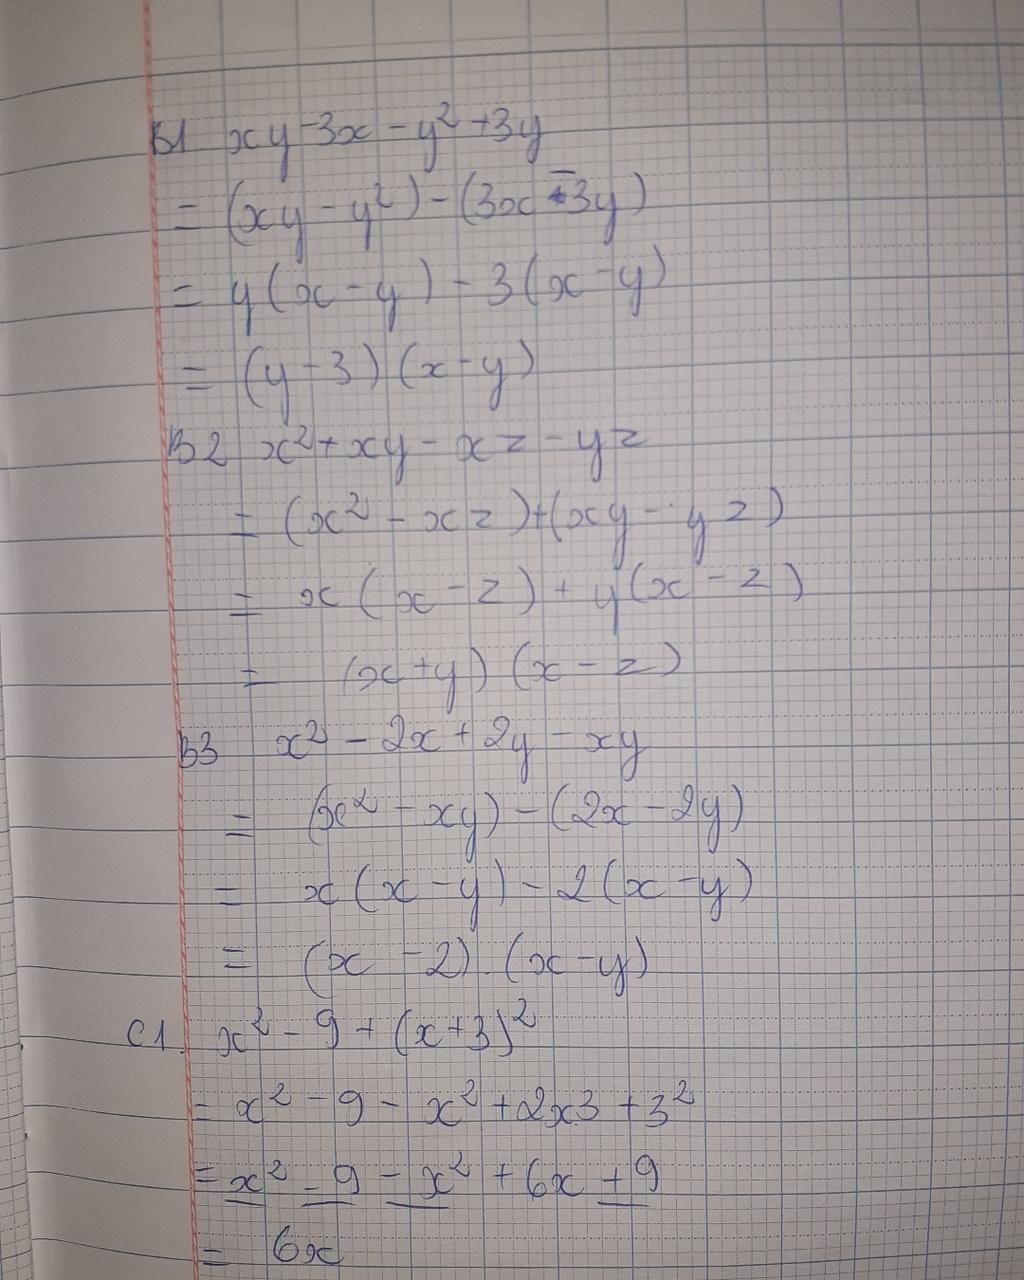 B1 xy - 3x - y² + 3y
= (xy - y²) - (3x - 3y)
= y(x - y) - 3(x - y)
= (y - 3)(x - y)
B2 x² + xy - xz - yz
= (x² - xz) + (xy - yz)
= x(x - z) + y(x - z)
= (x + y)(x - z)
B3 x² - 2x + 2y - xy
= (x² - xy) - (2x - 2y)
= x(x - y) - 2(x - y)
= (x - 2).(x - y)
C1. x² - 9 + (x + 3)²
= x² - 9 - x² + 2x3 + 3²
= x² - 9 - x² + 6x + 9
= 6x